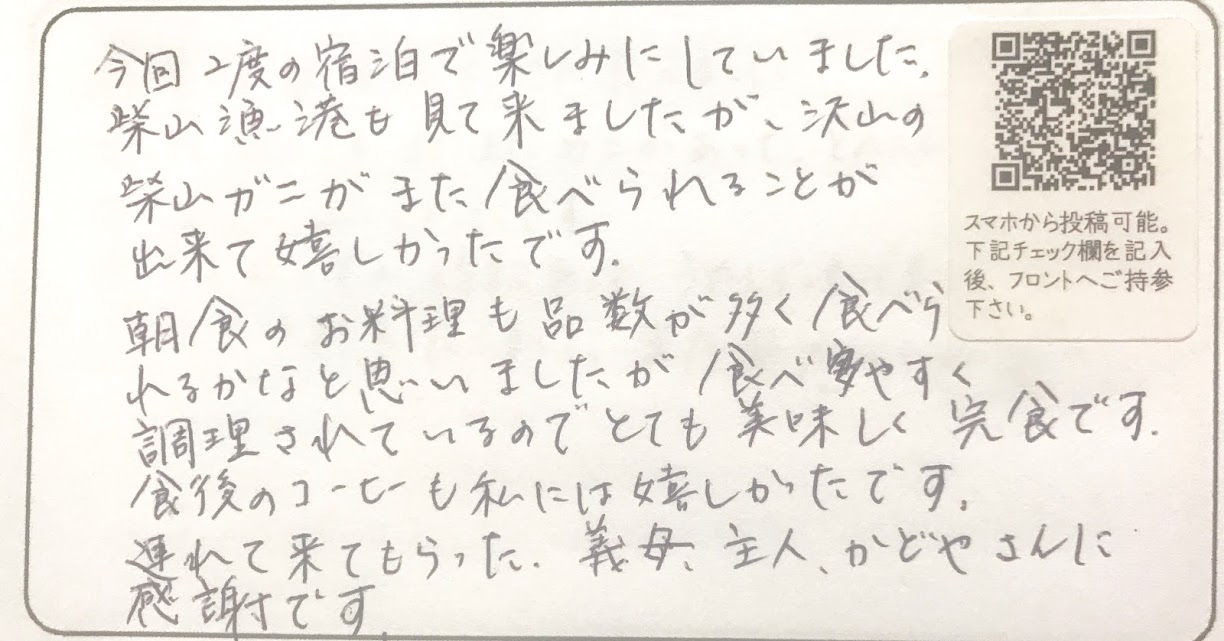 今回2度の宿泊で楽しみにしていました。
柴山漁港も見て来ましたが、沢山の
柴山ガニがまた食べられることが
出来て嬉しかったです。
朝食のお料理も品数が多く食べら
れるかなと思いましたが食べやすく
調理されているのでとても美味しく完食です。
食後のコーヒーも私には嬉しかったです。
連れて来てもらった、義母、主人、かどやさんに
感謝です。
スマホから投稿可能。
下記チェック欄を記入
後、フロントへご持参
下さい。